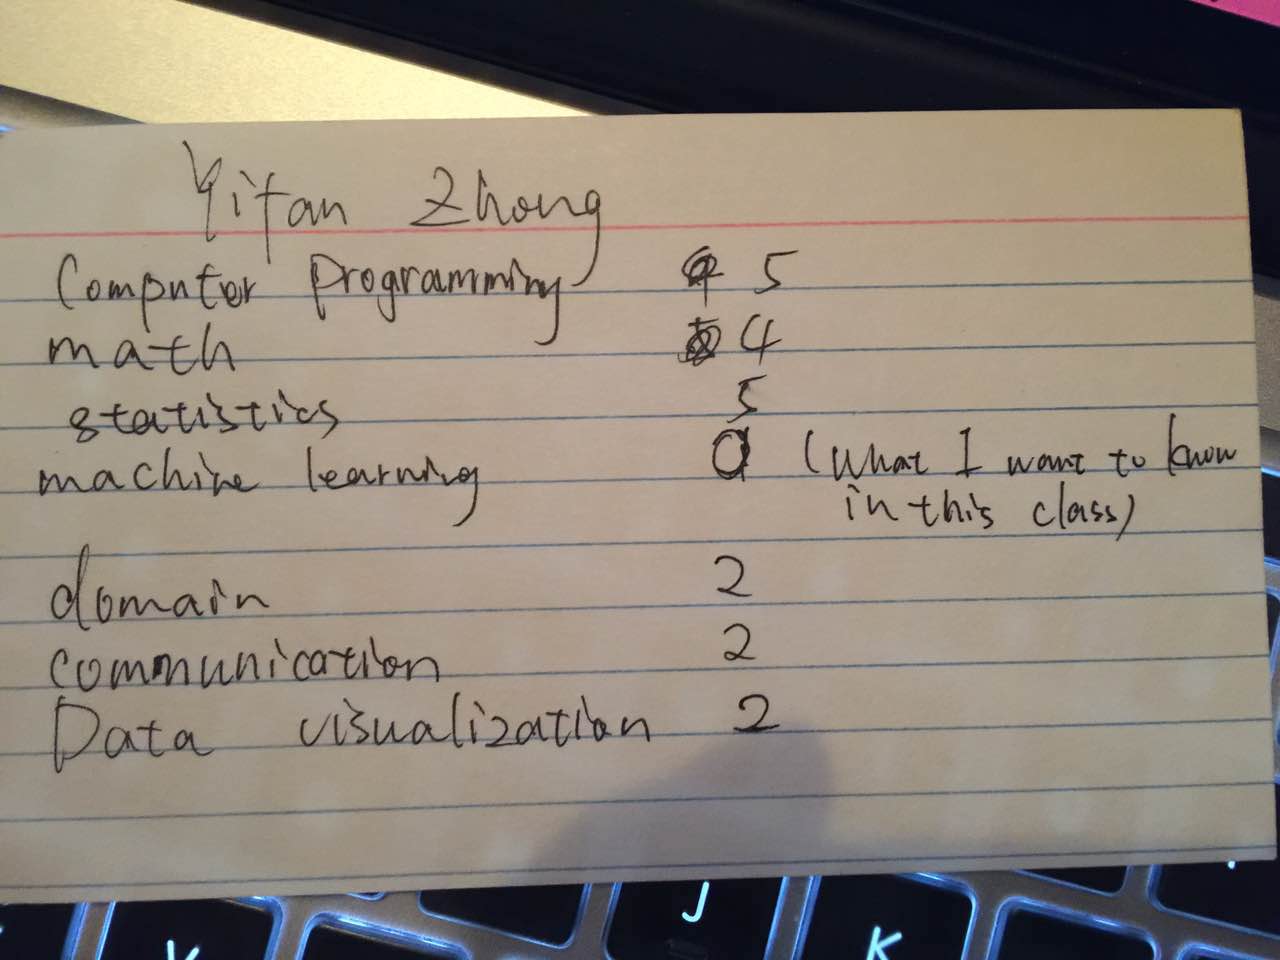 Yifan Zhong
Computer programming 5
math 4
statistics 5
machine learning 0 (what I want to know
in this class)
domain 2
communication 2
Data visualization 2
J
K